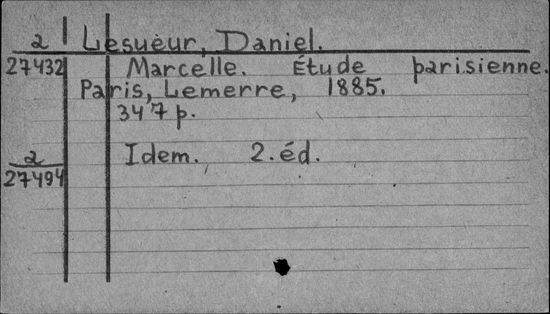 2 Lesueur, Daniel.
27432 Marcelle. Étude parisienne.
Paris, Lemerre, 1885.
347 p.
2 Idem. 2. éd.
27494